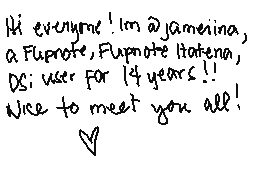 Hi everyone! Im @jameriina,
a Flipnote, Flipnote Hatena,
DSi user for 14 years!!
Nice to meet you all!